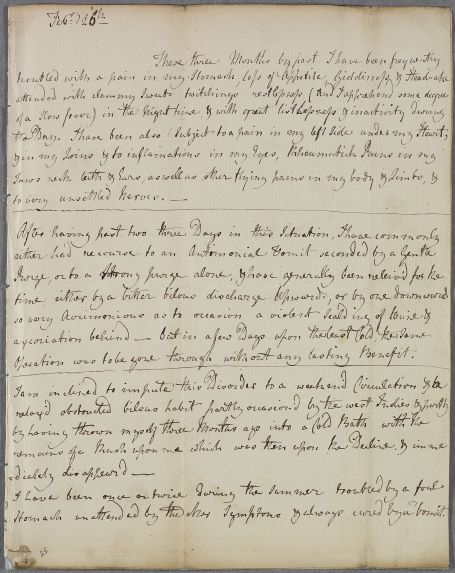 Febry. 26th
These three Months by past I have been frequently
troubled with a pain in my Stomach, Loss of Appetite, Giddiness, & Head-ache
attended with clammy Sweats twitchings restlessness (and I apprehend some degree
of a slow fever) in the Night time & with great listlessness & inactivity during
the Day. I have been also Subject to a pain in my left Side under my Heart,
& in my Loins & to inflamations in my Eyes, Rheumatick Pains in my
Jaws neck teeth & Ears, as well as other flying pains in my body & Joints, &
to very unsettled Nerves. —
After having past two three Days in this Situation, I have commonly
either had recourse to an Antimonial Vomit seconded by a Gentle
Purge, or to a strong purge alone, & have generally been relieved for the
time, either by a bitter bilous discharge Upwards, or by one downwards
so very Acrimonious as to occasion a violent Scalding of Urine &
excoriation behind — but in a few Days upon the least Cold, the same
Operation was to be gone through without any lasting Benefit.
I am inclined to impute this Disorder to a weakend Circulation & to a
relax'd obstructed bilous habit partly occasion'd by the west Indies & partly
by having thrown myself three Months ago into a Cold Bath with the
remains of a Rash upon me which was then upon the Decline, & imme
diately disappeard —
I have been once or twice during the Summer troubled by a foul
Stomach unattended by the other Symptoms & always cured by a Vomit.